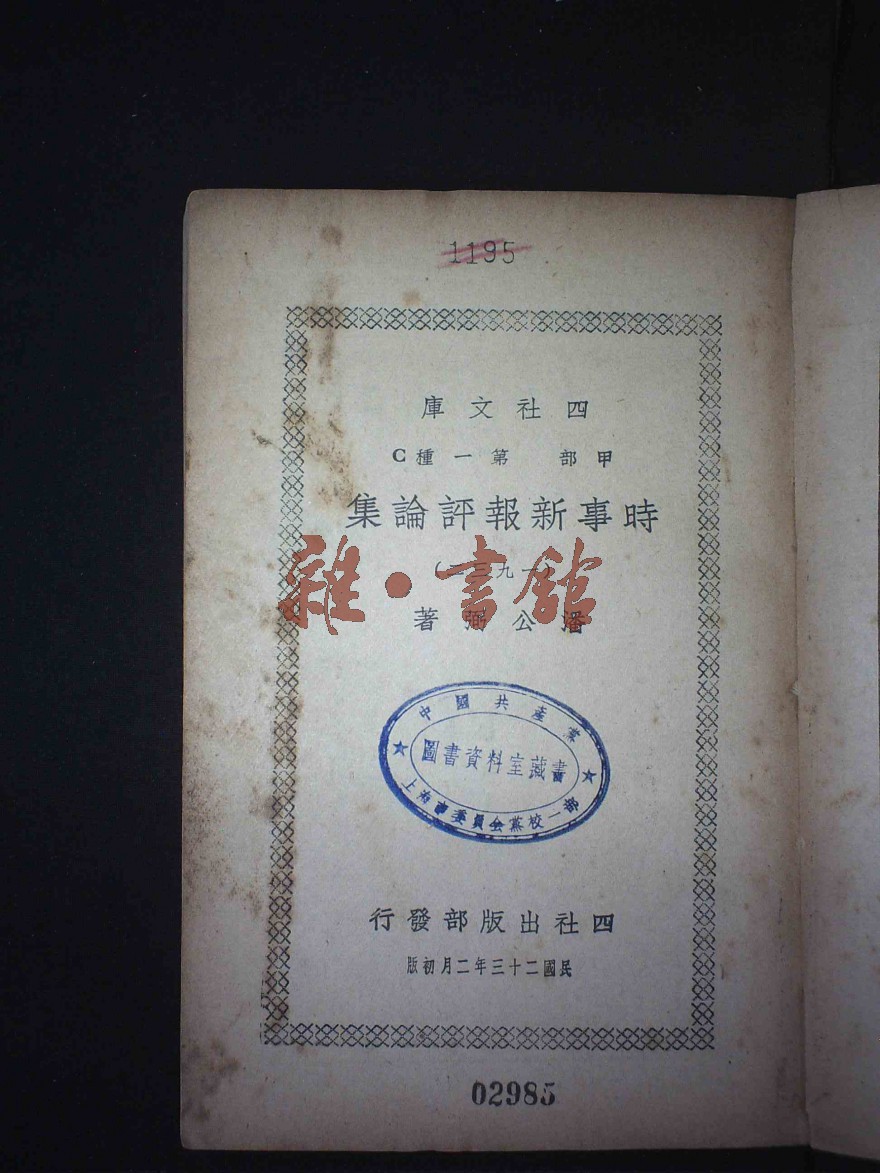 1195
四社文庫
甲部 第一種C
時事新報評論集
(一九三二)
潘公弼著
雜·書館
中國共產黨
圖書資料室藏書
上海市委員會黨校一部
四社出版部發行
民國二十三年二月初版
02985